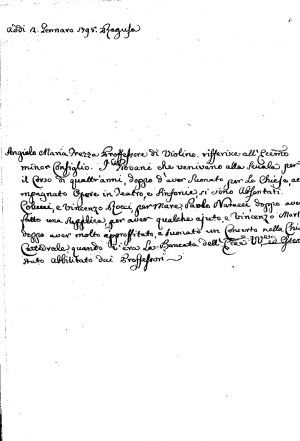 Addi 2. Gennaro 1795. Ragusa
Angiolo Maria Frezza Proffesore di Violino, rifferisce all'Ecc:mo
minor Consiglio. I Giovani che venivano alla Scuola per
il Corso di quattr'anni, doppo d'aver Suonato per le Chiese, ac
mpagnato Opere in Teatro, e Sinfonie si sono Assentati
e Vincenzo per Mare, Paolo doppo aver
fatto una Supplica per aver qualche ajuto, e Vincenzo Mart
doppo aver molto approffitato, e suonato un Concerto nella Chie
Cattedrale quando v'era la Bancata dell'
Stato abbilitato dei Proffessori